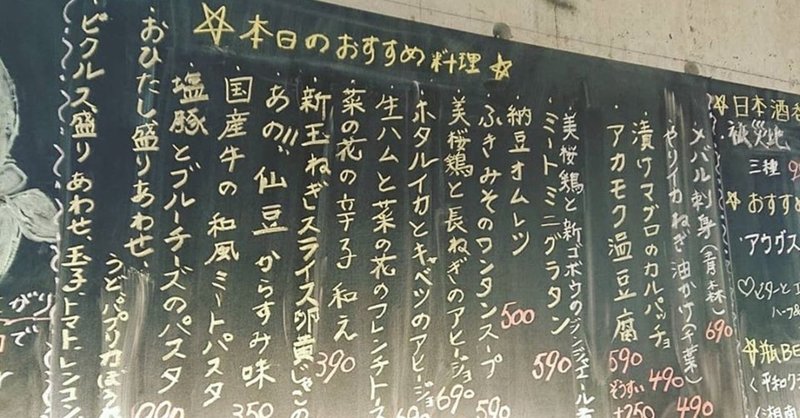 ☆本日のおすすめ料理☆
・メバル刺身(青森) 690
・やりイカねぎ油がけ(千葉) 490
・漬けマグロのカルパッチョ 490
・アカモク温豆腐 590
ぞうすい +250
・美桜鶏と新ゴボウのジンジャエール煮
・ミートミニグラタン 590
・納豆オムレツ 500
・ふきみそのワンタンスープ 590
・美桜鶏と長ねぎのアヒージョ 690
・ホタルイカとキャベツのアヒージョ
・生ハムと菜の花のフレンチトー
・菜の花の辛子和え 390
・新玉ねぎスライス卵黄じゃこの
・あの!!仙豆からすみ味 350
・国産牛の和風ミートパスタ
・塩豚とブルーチーズのパスタ
・おひたし盛りあわせ、
うどパプリカぼうれ
・ピクルス盛りあわせ、玉子トマト、レンコン
☆日本酒
被災地
三種
☆おすすめ
アウグス
☆瓶BE